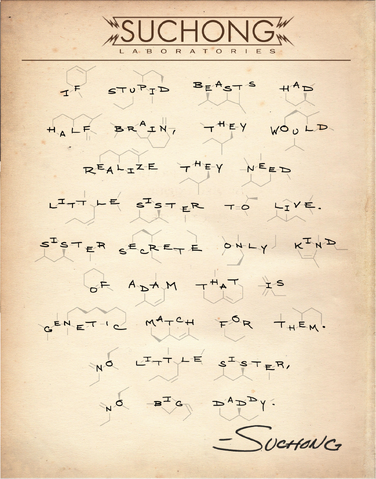 SUCHONG
LABORATORIES
IF STUPID BEASTS HAD
HALF BRAIN, THEY WOULD
REALIZE THEY NEED
LITTLE SISTER TO LIVE.
SISTER SECRETE ONLY KIND
OF ADAM THAT IS
GENETIC MATCH FOR THEM.
NO LITTLE SISTER,
NO BIG DADDY.
-SUCHONG